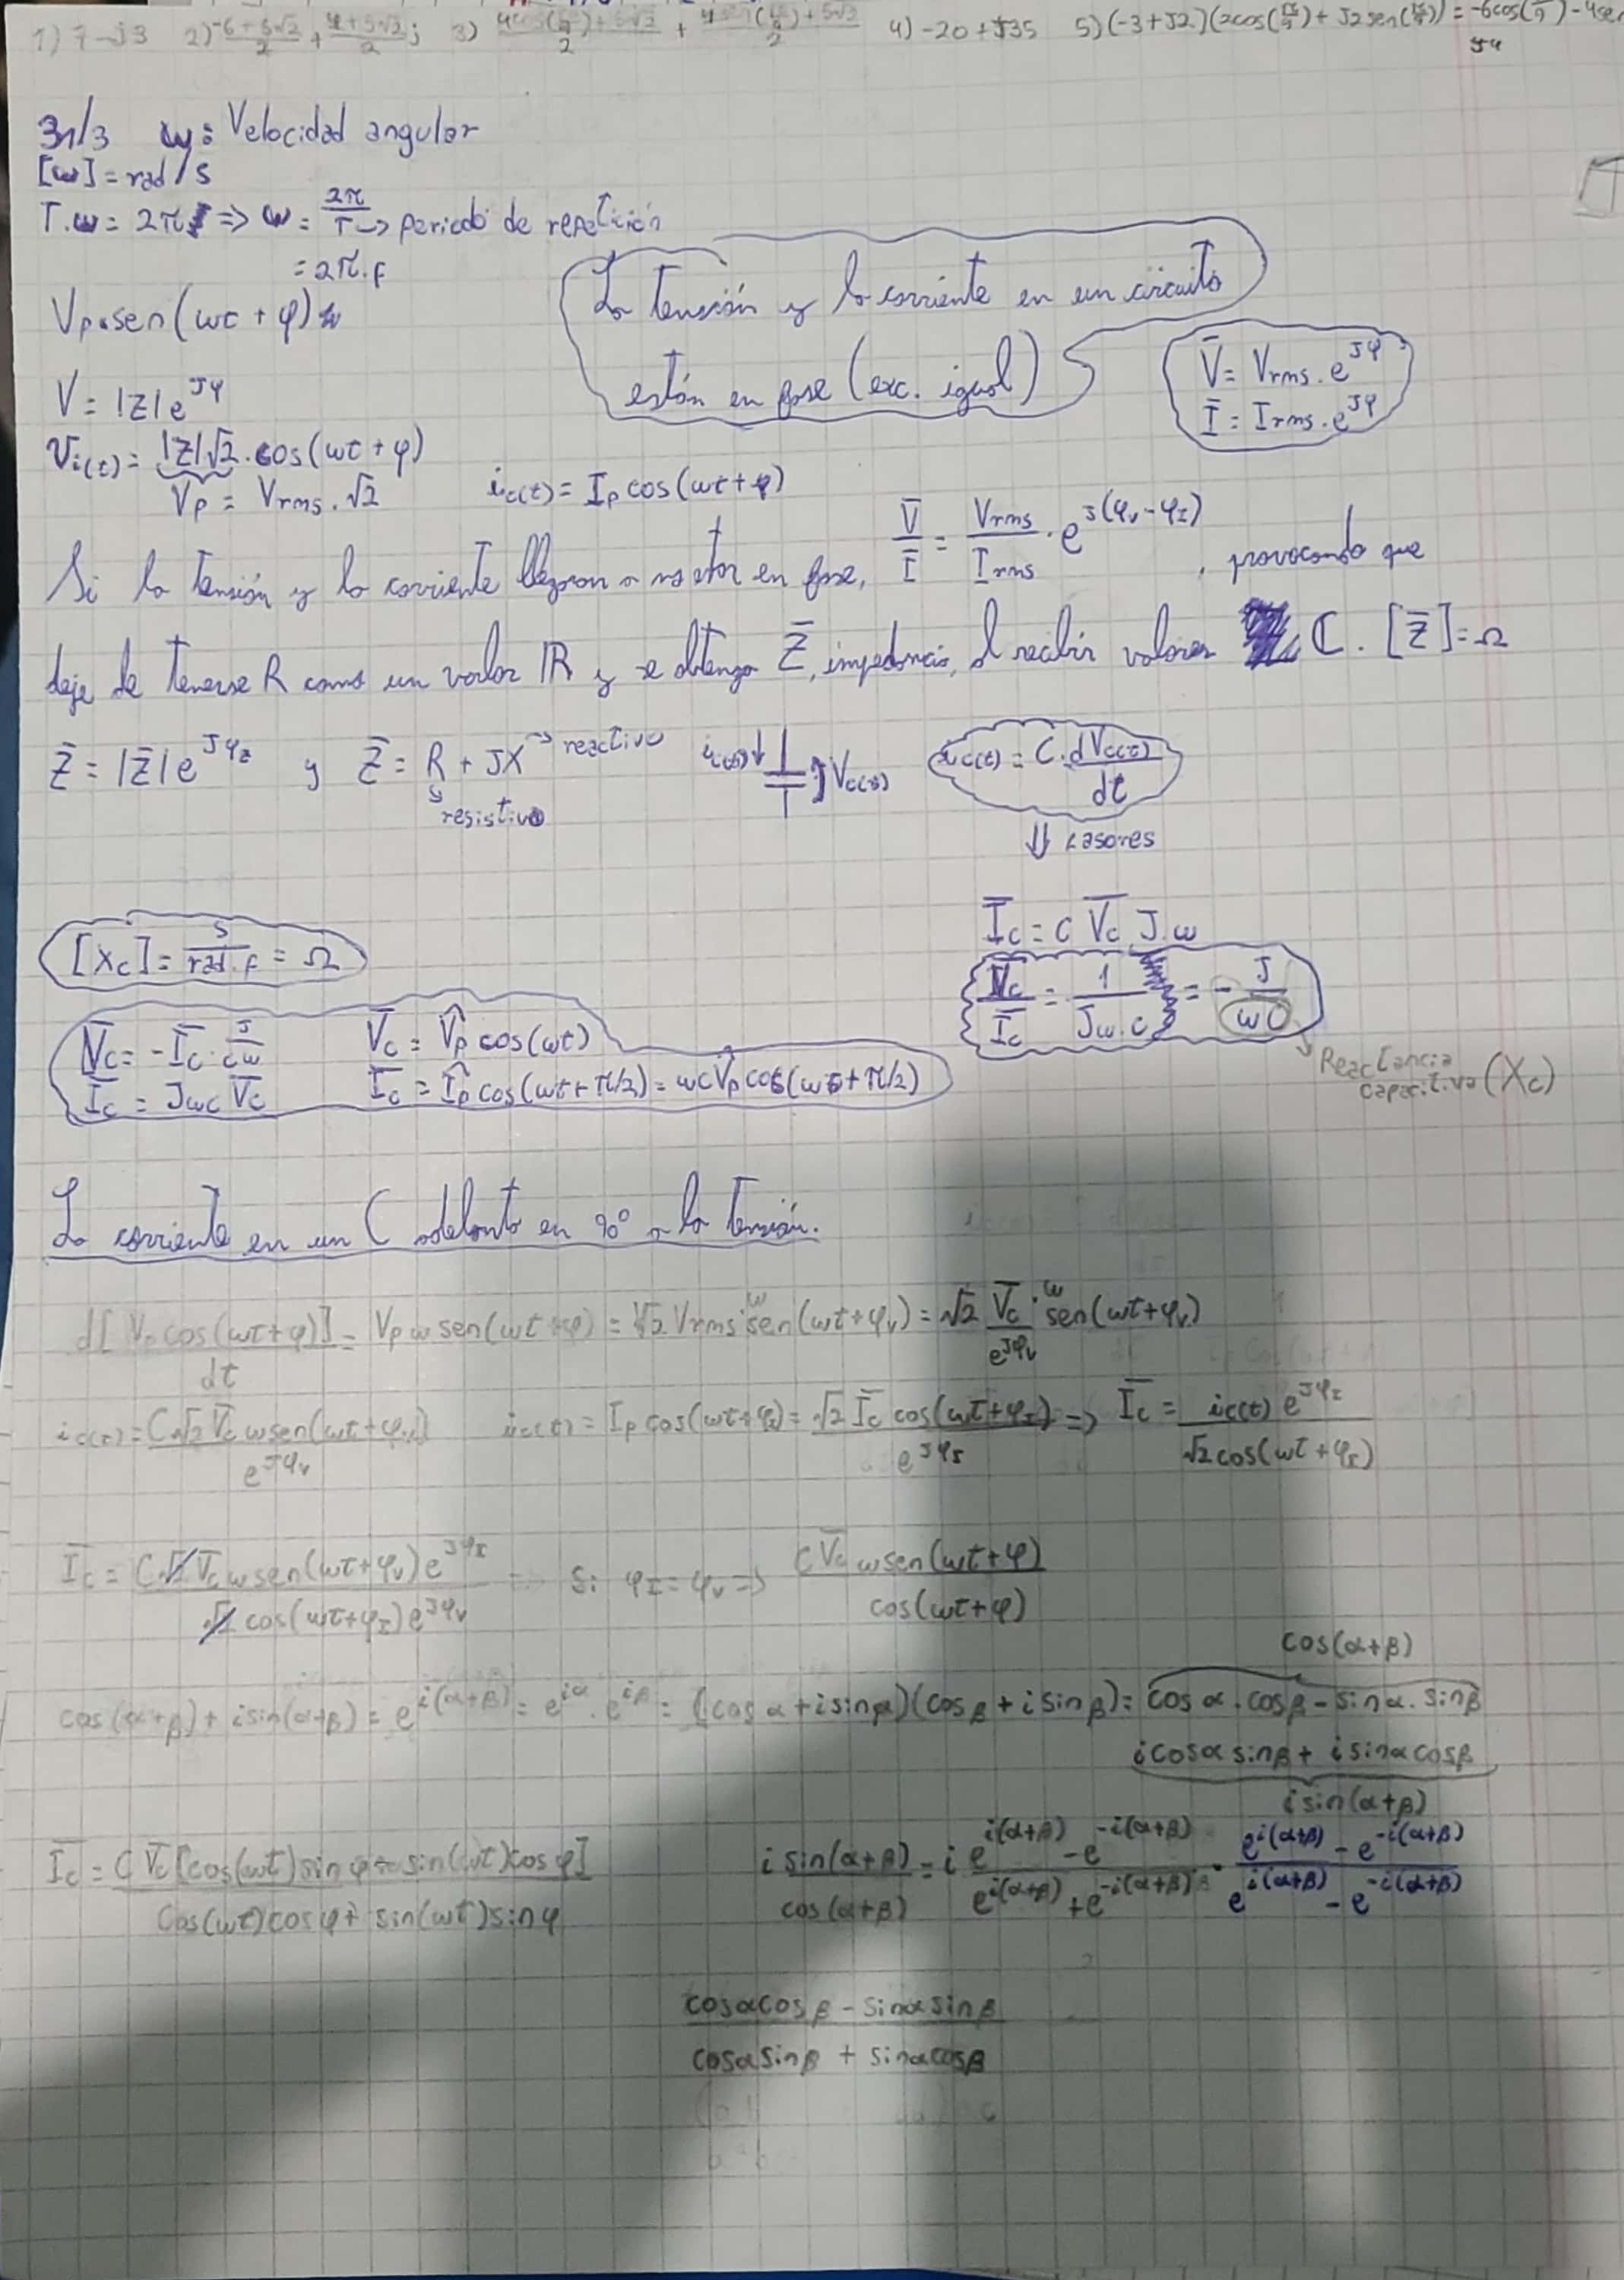 1) 7-J3 2) (-6+5√2)/2 + (4+5√2)/2 j 3) 4) -20+J35 5) (-3+J2)(2cos(π/9)+J2sen(π/9)) = -6cos(π/9) - 4sen
31/3 ω: Velocidad angular
[ω] = rad/s
T.ω = 2π => ω = 2π/T -> periodo de repetición
= 2π.f
Vp.sen(ωt + φ)
La tensión y la corriente en un circuito
están en fase (exc. igual)
V̄ = Vrms . e^Jφ
Ī = Irms . e^Jφ
V = |Z| e^Jφ
Vi(t) = |Z|√2 . cos(ωt + φ)
Vp = Vrms . √2
ic(t) = Ip cos(ωt + φ)
Si la tensión y la corriente llegaran a no estar en fase, V̄/Ī = Vrms/Irms . e^J(φv - φI), provocando que
deje de tenerse R como un valor ℝ y se obtenga Z̄, impedancia, al recibir valores ℂ. [Z̄] = Ω
Z̄ = |Z̄| e^Jφz y Z̄ = R + JX -> reactivo
resistivo
ic(t) Vc(t)
ic(t) = C . dVc(t)/dt
⇓ fasores
Īc = C V̄c J.ω
[Xc] = s/(rad.F) = Ω
V̄c/Īc = 1/(Jω.C) = -J/(ωC)
Reactancia
capacitiva (Xc)
V̄c = -Īc . J/(cω) V̄c = V̂p cos(ωt)
Īc = Jωc V̄c Īc = Îp cos(ωt + π/2) = ωcV̂p cos(ωt + π/2)
La corriente en un C adelanta en 90° a la tensión.
d[Vp cos(ωt+φ)]/dt = Vp ω sen(ωt+φ) = √2 Vrms . ω sen(ωt+φv) = √2 V̄c/e^Jφv . ω sen(ωt+φv)
ic(t) = C√2 V̄c ω sen(ωt+φv)/e^Jφv ic(t) = Ip cos(ωt+φI) = √2 Īc cos(ωt+φI)/e^JφI => Īc = ic(t) e^JφI/(√2 cos(ωt+φI))
Īc = C√2 V̄c ω sen(ωt+φv) e^JφI/(√2 cos(ωt+φI) e^Jφv) => Si φI = φv => C V̄c ω sen(ωt+φ)/cos(ωt+φ)
cos(α+β)
cos(α+β) + i sin(α+β) = e^i(α+β) = e^iα . e^iβ = (cos α + i sin α)(cos β + i sin β) = cos α . cos β - sin α . sin β
i cosα sinβ + i sinα cosβ
i sin(α+β)
Īc = C V̄c [cos(ωt) sin φ + sin(ωt) cos φ]/(cos(ωt) cos φ + sin(ωt) sin φ)
i sin(α+β)/cos(α+β) = i (e^i(α+β) - e^-i(α+β))/(e^i(α+β) + e^-i(α+β)) . (e^i(α+β) - e^-i(α+β))/(e^i(α+β) - e^-i(α+β))
cosα cosβ - sinα sinβ
cosα sinβ + sinα cosβ